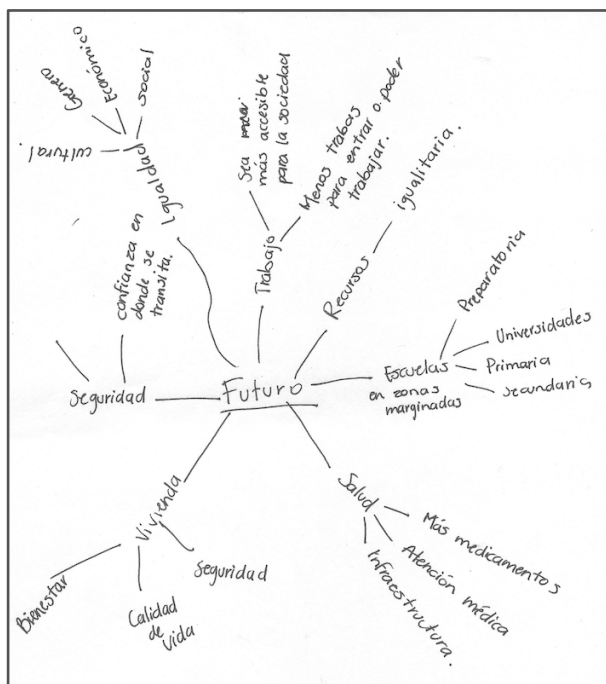 Futuro
Igualdad
cultural.
Género
Económico
social
Trabajo
Sea
más accesible
para la sociedad
Menos trabas
para entrar o poder
trabajar.
Recursos
igualitaria.
Escuelas
en zonas
marginadas
Preparatoria
Universidades
Primaria
secundaria
Salud
Más medicamentos
Atención médica
Infraestructura.
Vivienda
Seguridad
Calidad
de
vida
Bienestar
Seguridad
confianza en
donde se
transita.